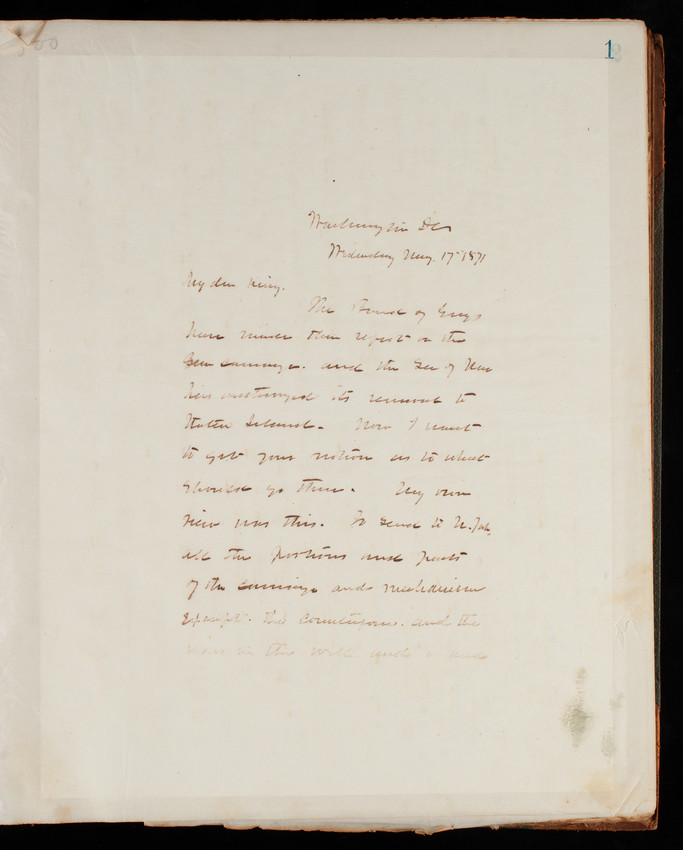 1
Washington DC
Wednesday May 17th 1871
My dear King.
The Board of Engs
have made their report on the
Gun carriage. and the Sec of War
has authorized its removal to
Staten Island. Now I want
to get your notion as to what
should go there. My own
view was this. To send to N. York,
all the portions and parts
of the carriage and mechanism
except the counterpoise. and the
in this well and